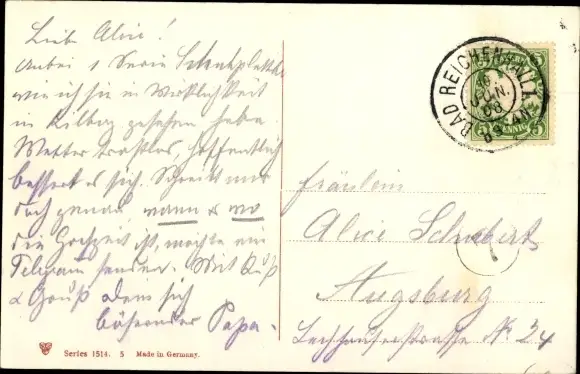 Liebe Alice!
Anbei 1 Serie Schuhplattler
wie ich sie in Wirklichkeit
in gesehen habe.
Wetter trostlos, hoffentlich
bessert es sich. Schreibt mir
doch genau, wann & wo
die Hochzeit ist, möchte ein
Telegram senden. Mit Kuß
& Gruß Dein sich
Papa.
BAD REICHENHALL
JUN.
08
5 PFENNIG 5
Fräulein
Alice Schubert
Augsburg
Lechhauserstrasse № 24
Series 1514. 5 Made in Germany.